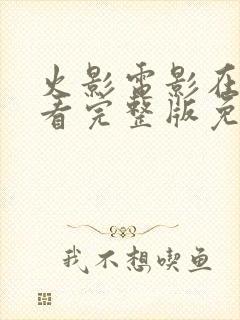 火影雷影在
看完整版免
我不想喫鱼